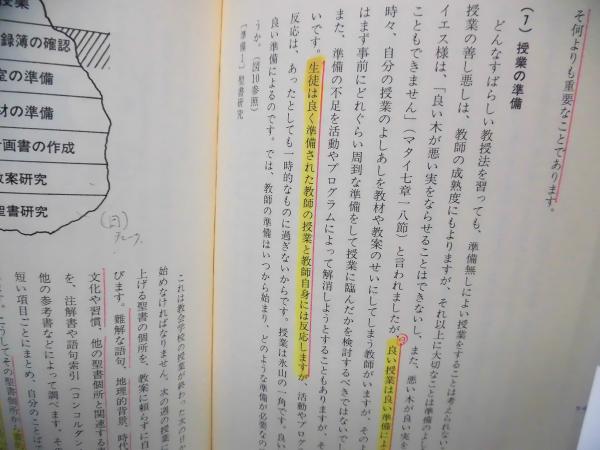 そ何よりも重要なことであります。
(1) 授業の準備
どんなすばらしい教授法を習っても、準備無しによい授業をすることは考えられない
授業の善し悪しは、教師の成熟度にもよりますが、それ以上に大切なことは準備のよし
イエス様は、「良い木が悪い実をならせることはできないし、また、悪い木が良い実を
こともできません」(マタイ七章一八節)と言われましたが、良い授業は良い準備によ
時々、自分の授業のよしあしを教材や教案のせいにしてしまう教師がいますが、そのよ
はまず事前にどれぐらい周到な準備をして授業に臨んだかを検討するべきではないでし
また、準備の不足を活動やプログラムによって解消しようとすることもありますが、そ
いです。生徒は良く準備された教師の授業と教師自身には反応しますが、活動やプログ
反応は、あったとしても一時的なものに過ぎないからです。授業は氷山の一角です。良い
良い準備によるのです。では、教師の準備はいつから始まり、どのような準備が必要なの
うか。(図10参照)
〔準備1〕聖書研究
これは教会学校の授業が終わった次の日か
始めなければなりません。次の週の授業に
上げる聖書の個所を、教案に頼らずに自
びます。難解な語句、地理的背景、時代
文化や習慣、他の聖書個所と関連する
を、注解書や語句索引(コンコルダン
他の参考書などによって調べます。そ
短い項目ごとにまとめ、自分のことば
こうしてその聖書個所から
授業
録簿の確認
室の準備
材の準備
計画書の作成
教案研究
聖書研究